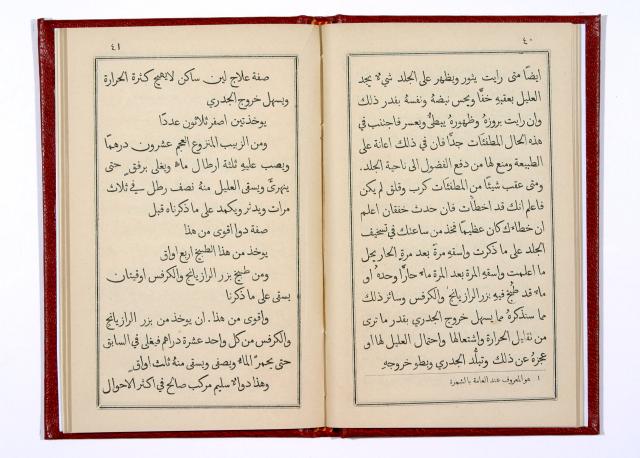 ٤٠
ايضًا متى رايت يثور ويظهر على الجلد شيءٌ يجد
العليل بعقبه خفًّا ويحسن نبضهُ ونفسهُ بقدر ذلك
وان رايت بروزهُ وظهورهُ يبطئُ ويعسر فاجتنب في
هذه الحال المطفئات جدًّا فان في ذلك اعانة على
الطبيعة ومنع لها من دفع الفضول الى ناحية الجلد.
ومتى عقب شيئًا من المطفئات كرب وقلق لم يكن
فاعلم انك قد اخطأت فان حدث خفقان اعلم
ان خطاءك كان عظيمًا فخذ من ساعتك في تسخيف
الجلد على ما ذكرت واسقهِ مرةً بعد مرةٍ الحار بجل
ما اعلمت واسقهِ المرة بعد المرة ماءً حارًّا وحدهُ او
ماءً قد طُبخ فيهِ بزر الرازيانج والكرفس وسائر ذلك
مما سنذكرهُ مما يسهل خروج الجدري بقدر ما ترى
من تقليل الحرارة واشتعالها واحتمال العليل لها او
عجزهُ عن ذلك وتبلُّد الجدري وبطوِ خروجهِ
١ هو المعروف عند العامة بالشمرة
٤١
صفة علاج لين ساكن لا يهيج كثرة الحرارة
ويسهل خروج الجدري
يوخذ تين اصفر ثلاثون عددًا
ومن الزبيب المنزوع العجم عشرون درهمًا
ويصب عليهِ ثلثة ارطال ماءٍ ويغلى برفقٍ حتى
ينهرئَ ويسقى العليل منهُ نصف رطل في ثلاث
مرات ويدثر ويكمد على ما ذكرناه قبل
صفة دوا اقوى من هذا
يوخذ من هذا الطبيخ اربع اواقٍ
ومن طبيخ بزر الرازيانج والكرفس اوقيتان
يسقى على ما ذكرنا
واقوى من هذا. ان يوخذ من بزر الرازيانج
والكرفس من كل واحد عشرة دراهم فيغلى في السابق
حتى يحمرَّ الماءُ ويصفى ويسقى منهُ ثلاث اواقٍ
وهذا دواءٌ سليم مركب صالح في اكثر الاحوال